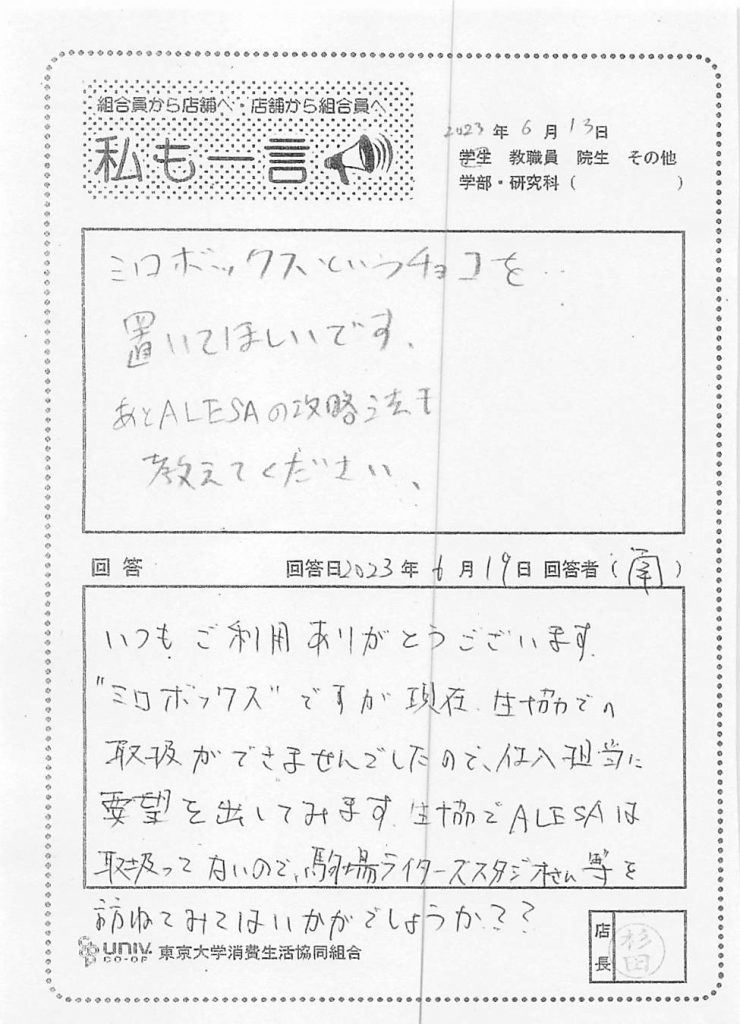 組合員から店舗へ・店舗から組合員へ
私も一言
2023年6月13日
学生 教職員 院生 その他
学部・研究科( )
ミロボックスというチョコを
置いてほしいです。
あとALESAの攻略法も
教えてください。
回答 回答日2023年6月19日 回答者(南)
いつもご利用ありがとうございます。
"ミロボックス"ですが現在、生協での
取扱ができませんでしたので、仕入担当に
要望を出してみます。生協でALESAは
取扱ってないので、駒場ライターズスタジオさん等を
訪ねてみてはいかがでしょうか??
UNIV. CO-OP 東京大学消費生活協同組合
店長 杉田